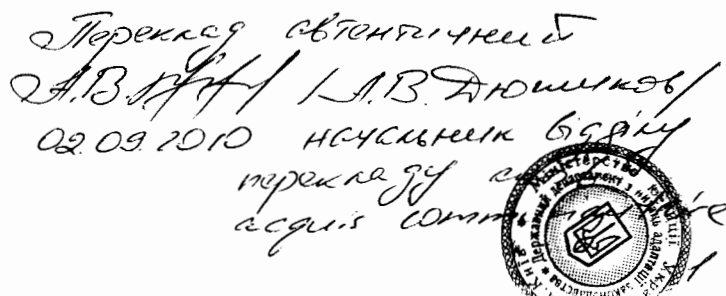 Переклад автентичний
А.В. /А.В. Дюшиков/
02.09.2010 начальник відділу
перекладу
acquis communautaire
Міністерство юстиції України * м. Київ *
Державний департамент з питань адаптації законодавства *